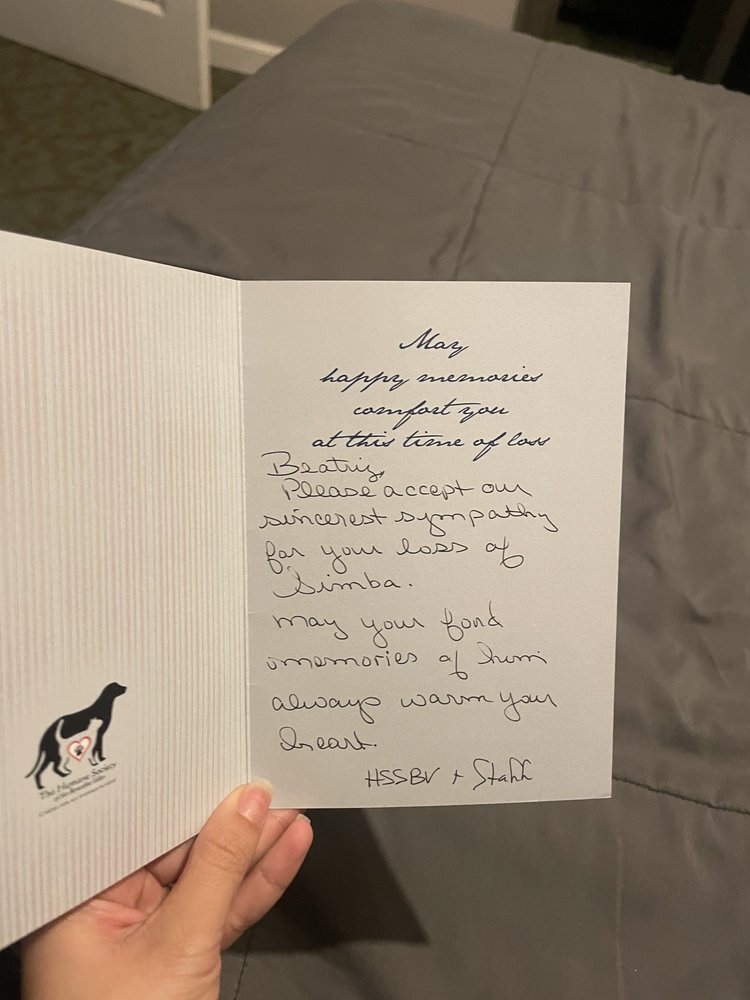 May
happy memories
comfort you
at this time of loss
Beatriz,
Please accept our
sincerest sympathy
for your loss of
Simba.
may your fond
memories of him
always warm your
heart.
HSSBV + Staff
The Humane Society
of San Bernardino Valley